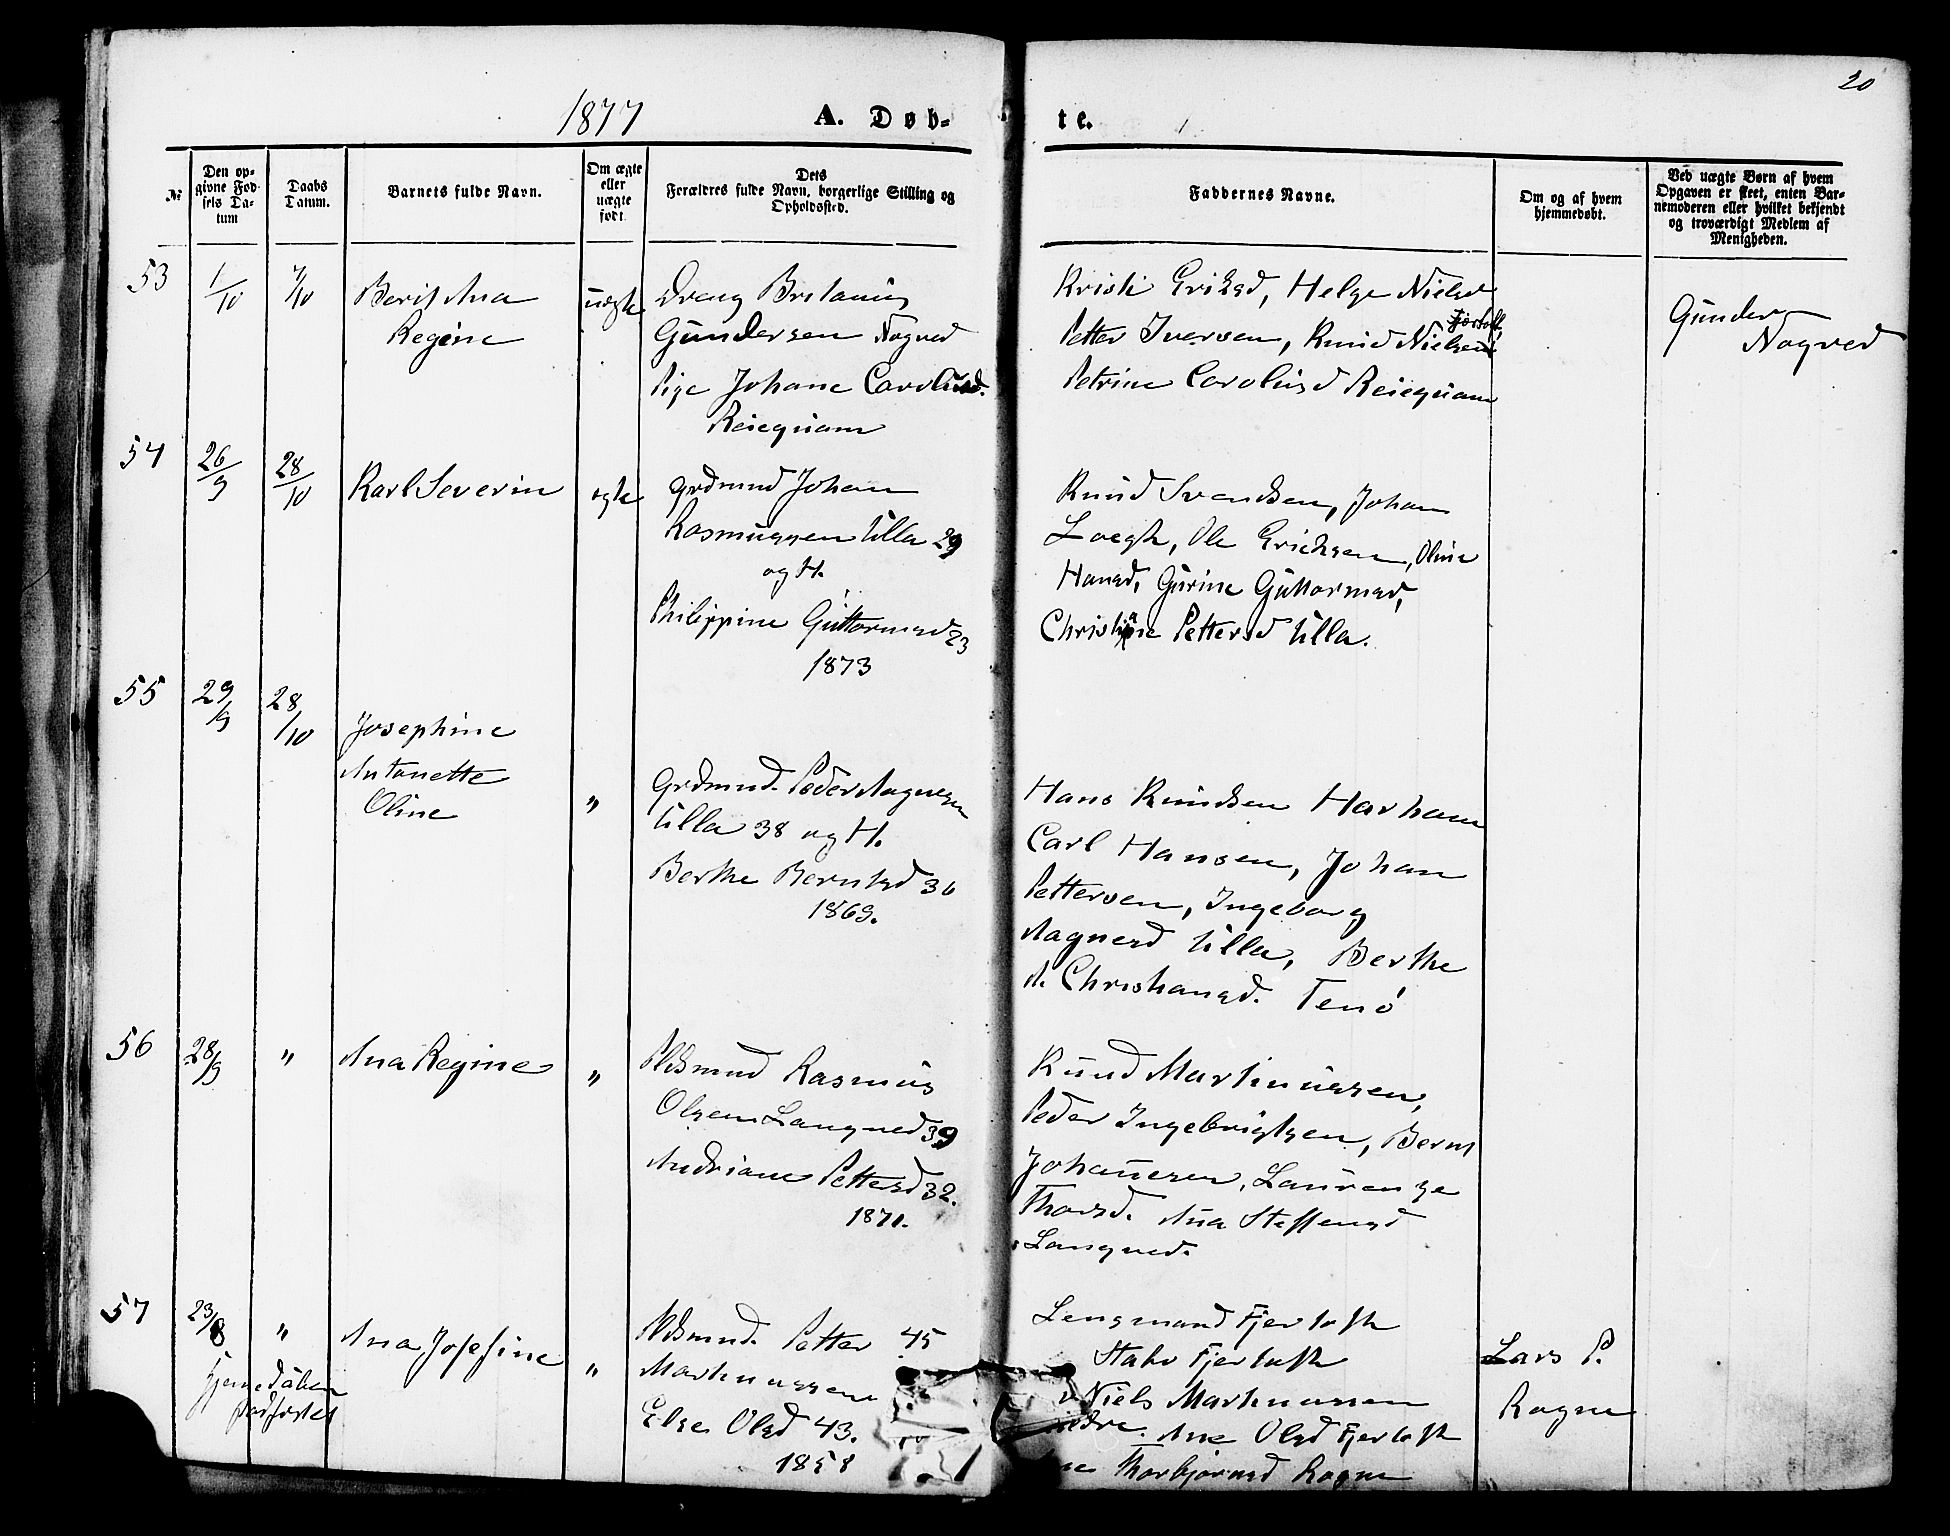 20
1877
A. Døb-
te.
№
Den op-
givne Fød-
sels Da-
tum
Daabs
Datum.
Barnets fulde Navn.
Om ægte
eller
uægte
født.
Dets
Forældres fulde Navn, borgerlige Stilling og
Opholdssted.
Faddernes Navne.
Om og af hvem
hjemmedøbt.
Ved uægte Børn af hvem
Opgaven er skeet, enten Bar-
nemoderen eller hvilket bekjendt
og troværdigt Medlem af
Menigheden.
53
1/10
7/10
Berit Ana
Regine
uægte
Dreng
Gundersen Nogved
Pige Johane Carolusd.
Reiequam
Kristi Eriksd, Helge Nielsd
Fjørtoft
Petter Iversen, Knud Nielsen
Petrine Carolusd Reiequam
Gunder
Nogved
54
26/9
28/10
Karl Severin
egte
Grdmnd Johan
Rasmussen Ulla 29
og H.
Philippine Guttormsd 23
1873
Knud Svendsen, Johan
Ole Erichsen, Oline
Hansd, Gurine Guttormsd,
Christine Pettersd Ulla.
55
29/9
28/10
Josephine
Antonette
Oline
"
Grdmnd. Peder Aagnesen
Ulla 38 og H.
Berthe Berntsd 36
1869.
Hans Knudsen Harham
Carl Hansen, Johan
Pettersen, Ingeborg
Aagnesd Ulla, Berthe
A. Christiansd. Tenø
56
28/9
"
Ana Regine
"
Pldsmnd Rasmus
Olsen Longved 39
Andriane Pettersd 32.
1871.
Knud Martinussen,
Peder Ingebrigtsen, Bernt
Johannesen, Laurenze
Thorsd. Ana Steffensd
Longved.
57
23/8
"
hjemmedøben
stadfæstet
Ana Josefine
"
Pldsmnd. Petter 45
Martinussen
Else Olsd 43.
1858
Lensmand Fjertoft
Fjertoft
Niels Martinussen
Ane Olsd Fjertoft
Thorbjørnsd Rogne
Lars P.
Rogne